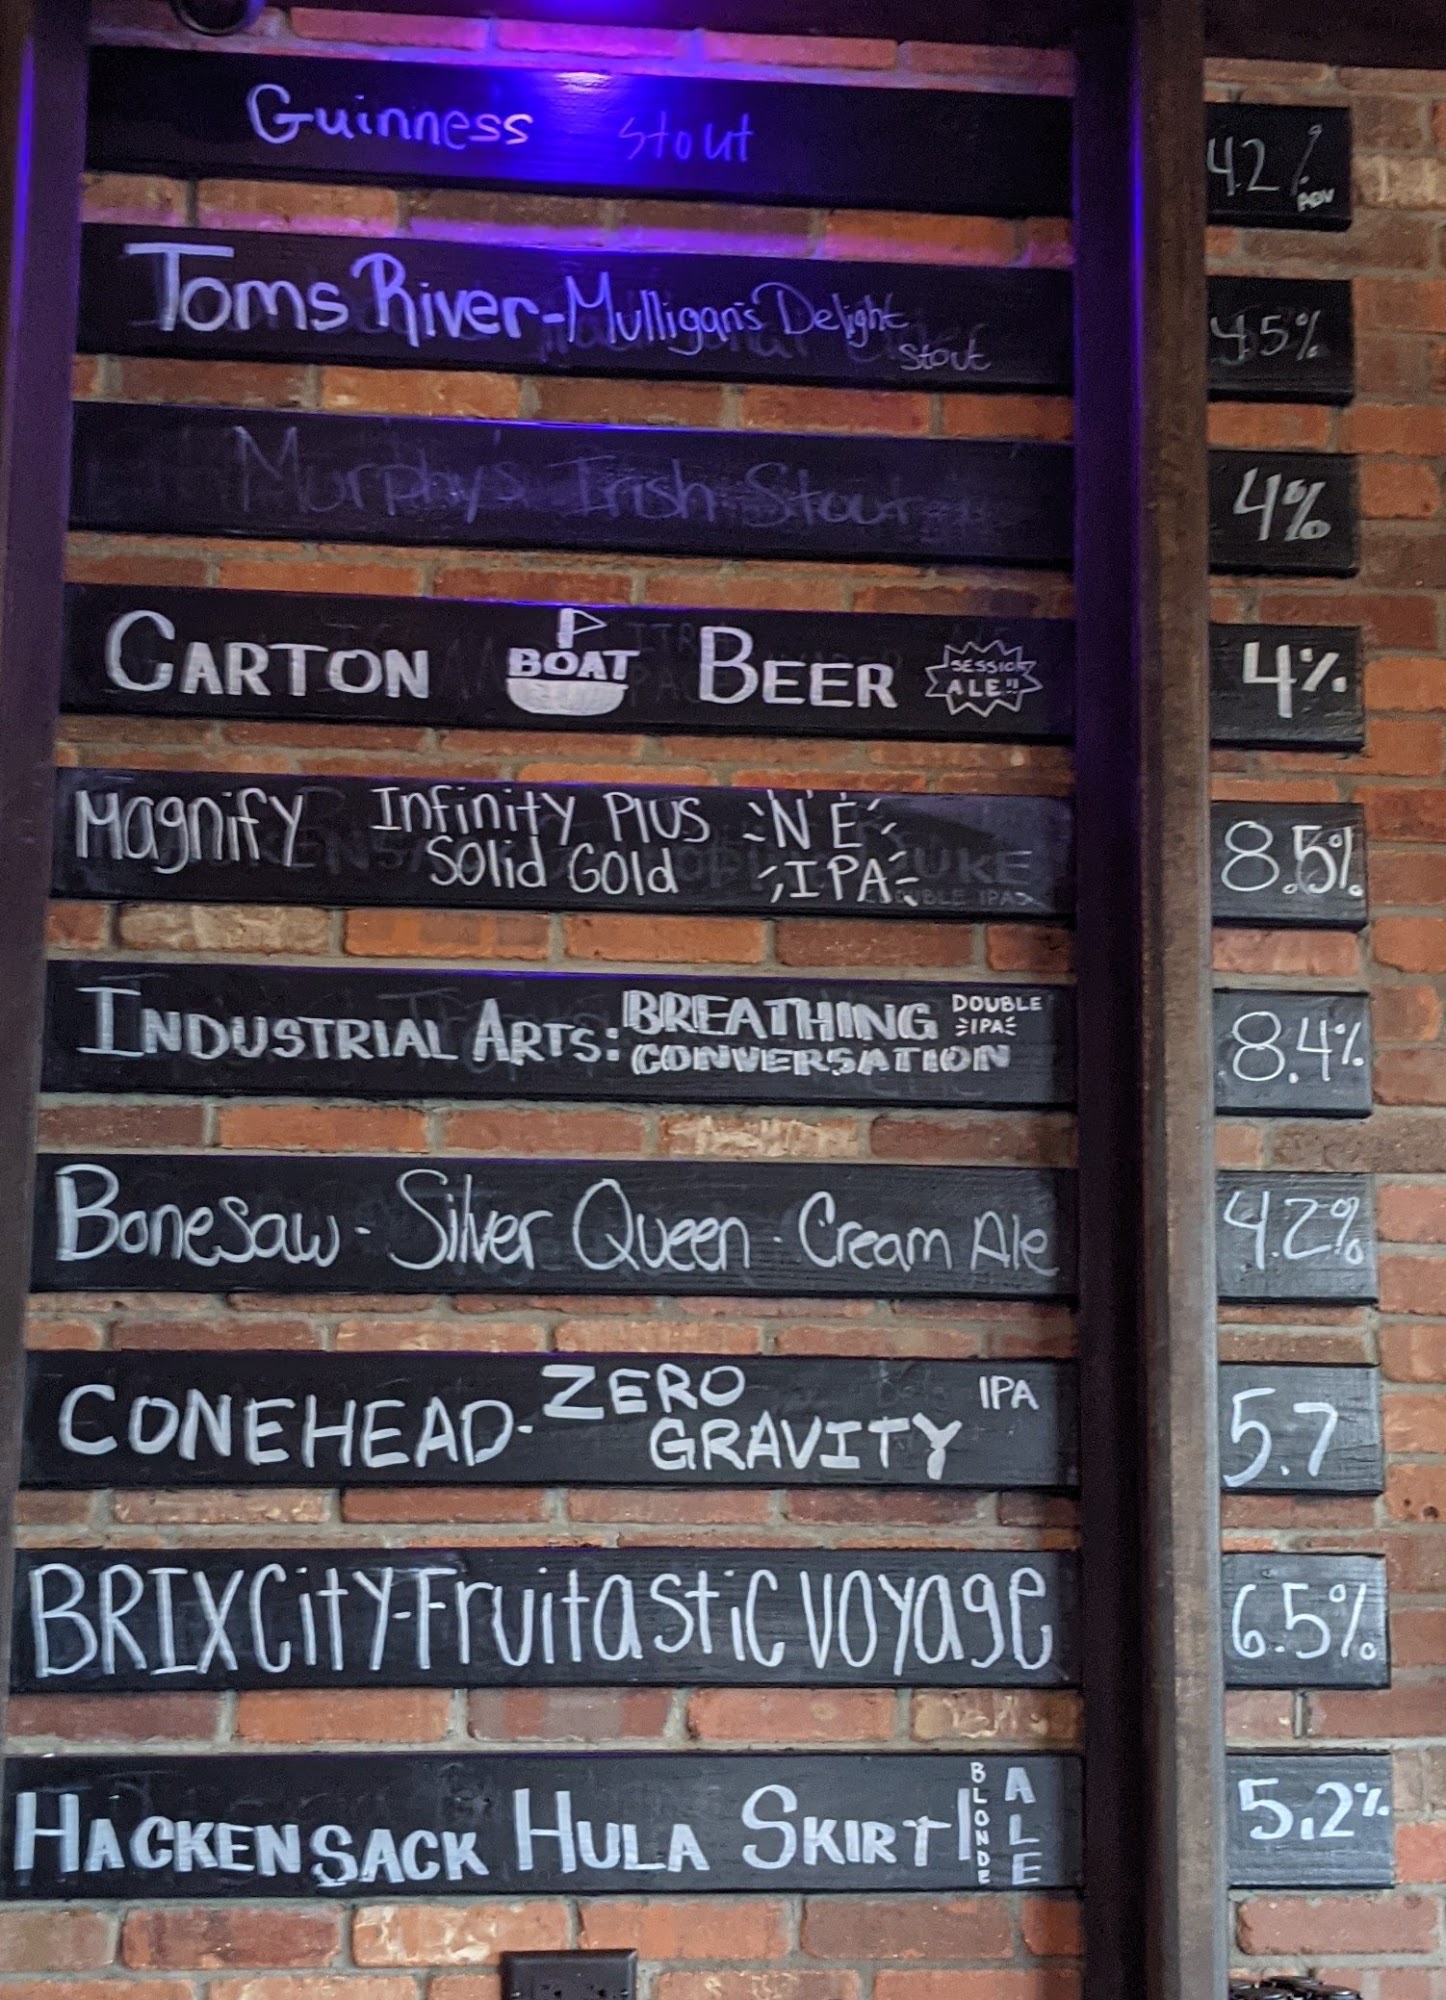 Guinness stout 4.2% ABV
Toms River - Mulligan's Delight stout 4.5%
Murphy's Irish Stout 4%
CARTON BOAT BEER SESSION ALE!! 4%
Magnify Infinity Plus Solid Gold NE IPA 8.5%
INDUSTRIAL ARTS: BREATHING CONVERSATION DOUBLE IPA 8.4%
Bonesaw - Silver Queen - Cream Ale 4.2%
CONEHEAD - ZERO GRAVITY IPA 5.7
BRIXCity-Fruitastic Voyage 6.5%
HACKENSACK HULA SKIRT | BLONDE ALE 5.2%